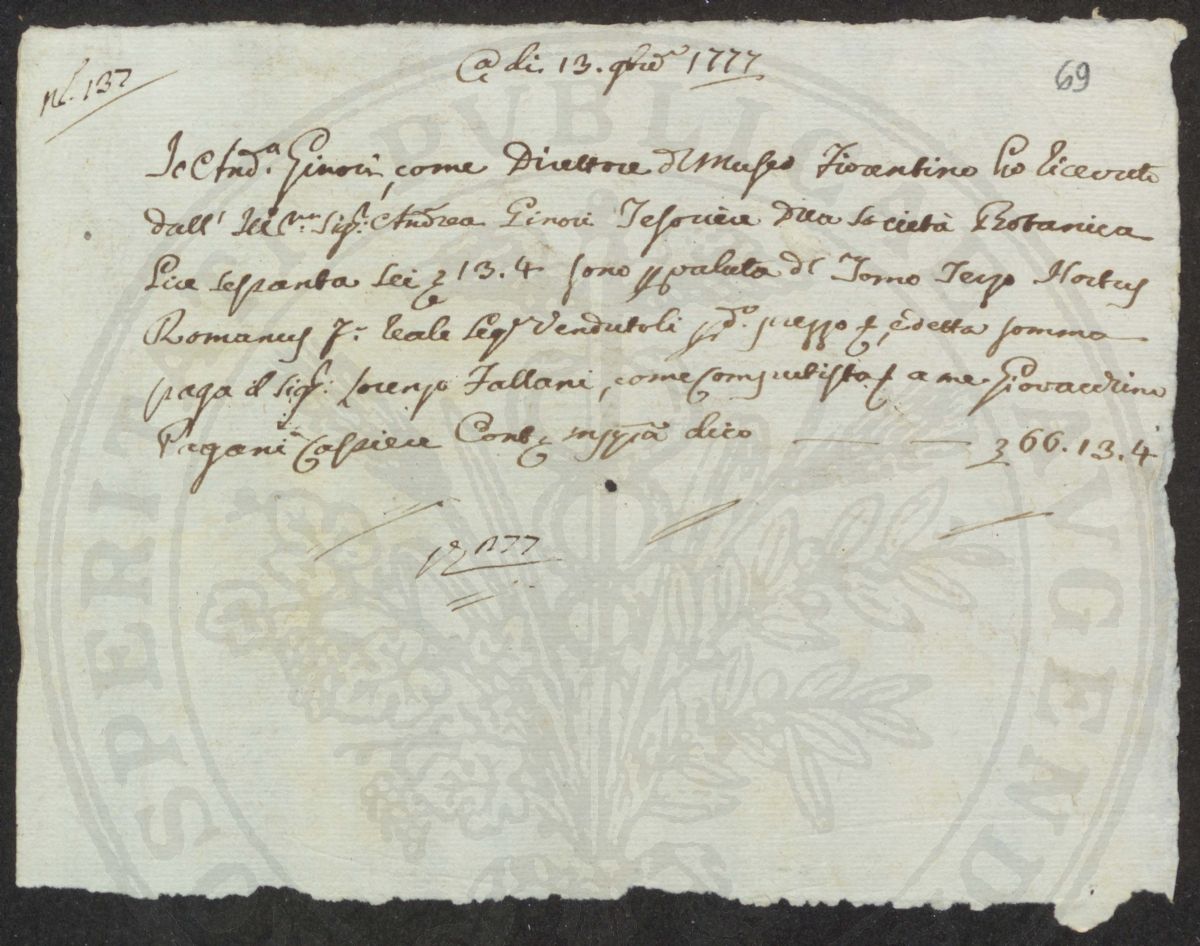 A di 13. 9bre 1777
N.° 137
69
Io Andª. Ginori, come Direttore dl Museo Fiorentino ho ricevuto
dall' Sigr. Andrea Ginori Tesoriere Dlla Società Botanica
Lire sessanta sei 13.4 sono valuta dl Tomo Terzo Hortus
Romanus Reale Vendutoli prezzo e detta somma
paga il Sigr. Lorenzo Fallani, come Computista a me Giovacchino
Pagani Cassiere Cont dico — — 66.13.4
1777
PERIT PUBLICAE AVGEND